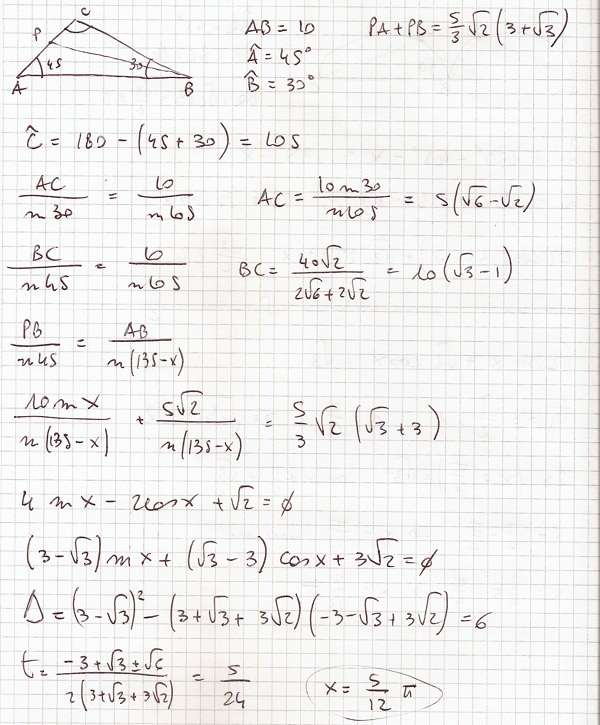 C
P
45 30
A B
AB = 10 PA + PB = 5/3 √2 (3 + √3)
Â = 45°
B̂ = 30°
Ĉ = 180 - (45 + 30) = 105
AC / n 30 = 10 / n 105 AC = 10 n 30 / n 105 = 5(√6 - √2)
BC / n 45 = 10 / n 105 BC = 40√2 / 2√6 + 2√2 = 10(√3 - 1)
PB / n 45 = AB / n(135 - x)
10 n x / n(135 - x) + 5√2 / n(135 - x) = 5/3 √2 (√3 + 3)
4 n x - 2cosx + √2 = ∅
(3 - √3) n x + (√3 - 3) cosx + 3√2 = ∅
Δ = (3 - √3)² - (3 + √3 + 3√2)(-3 - √3 + 3√2) = 6
t = -3 + √3 ± √6 / 2(3 + √3 + 3√2) = 5/24 x = 5/12 π